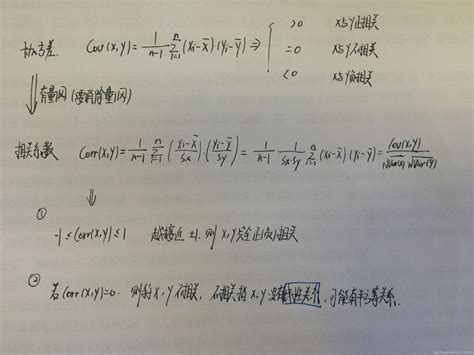 >0 X与Y正相关
协方差. Cov(X,Y) = \frac{1}{n-1} \sum_{i=1}^{n} (x_i - \bar{x})·(y_i - \bar{y}) ⇒ { =0 X与Y不相关
<0 X与Y负相关
⇓ 有量纲 (要消除量纲)
相关系数 Corr(X,Y) = \frac{1}{n-1} \sum_{i=1}^{n} (\frac{x_i - \bar{x}}{S_x})·(\frac{y_i - \bar{y}}{S_y}) = \frac{1}{n-1} \frac{1}{S_x·S_y} \sum_{i=1}^{n} (x_i - \bar{x})·(y_i - \bar{y}) = \frac{Cov(X,Y)}{\sqrt{Var(X)} \sqrt{Var(Y)}}
⇓
①
-1 ≤ Corr(X,Y) ≤ 1 越接近 ±1. 则 X,Y 完全正(负)相关
② 若 Corr(X,Y)=0. 则称 X,Y 不相关, 不相关指 X,Y 没有线性关系, 可能有平方等关系.